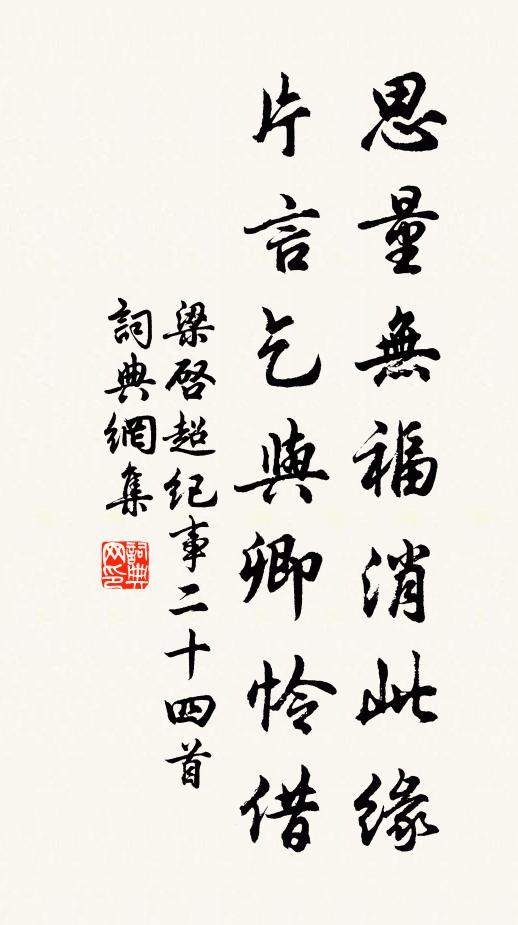 思量無福消此緣
片言乞與卿怜借
梁啓超紀事二十四首
詞典網集
詞典网印